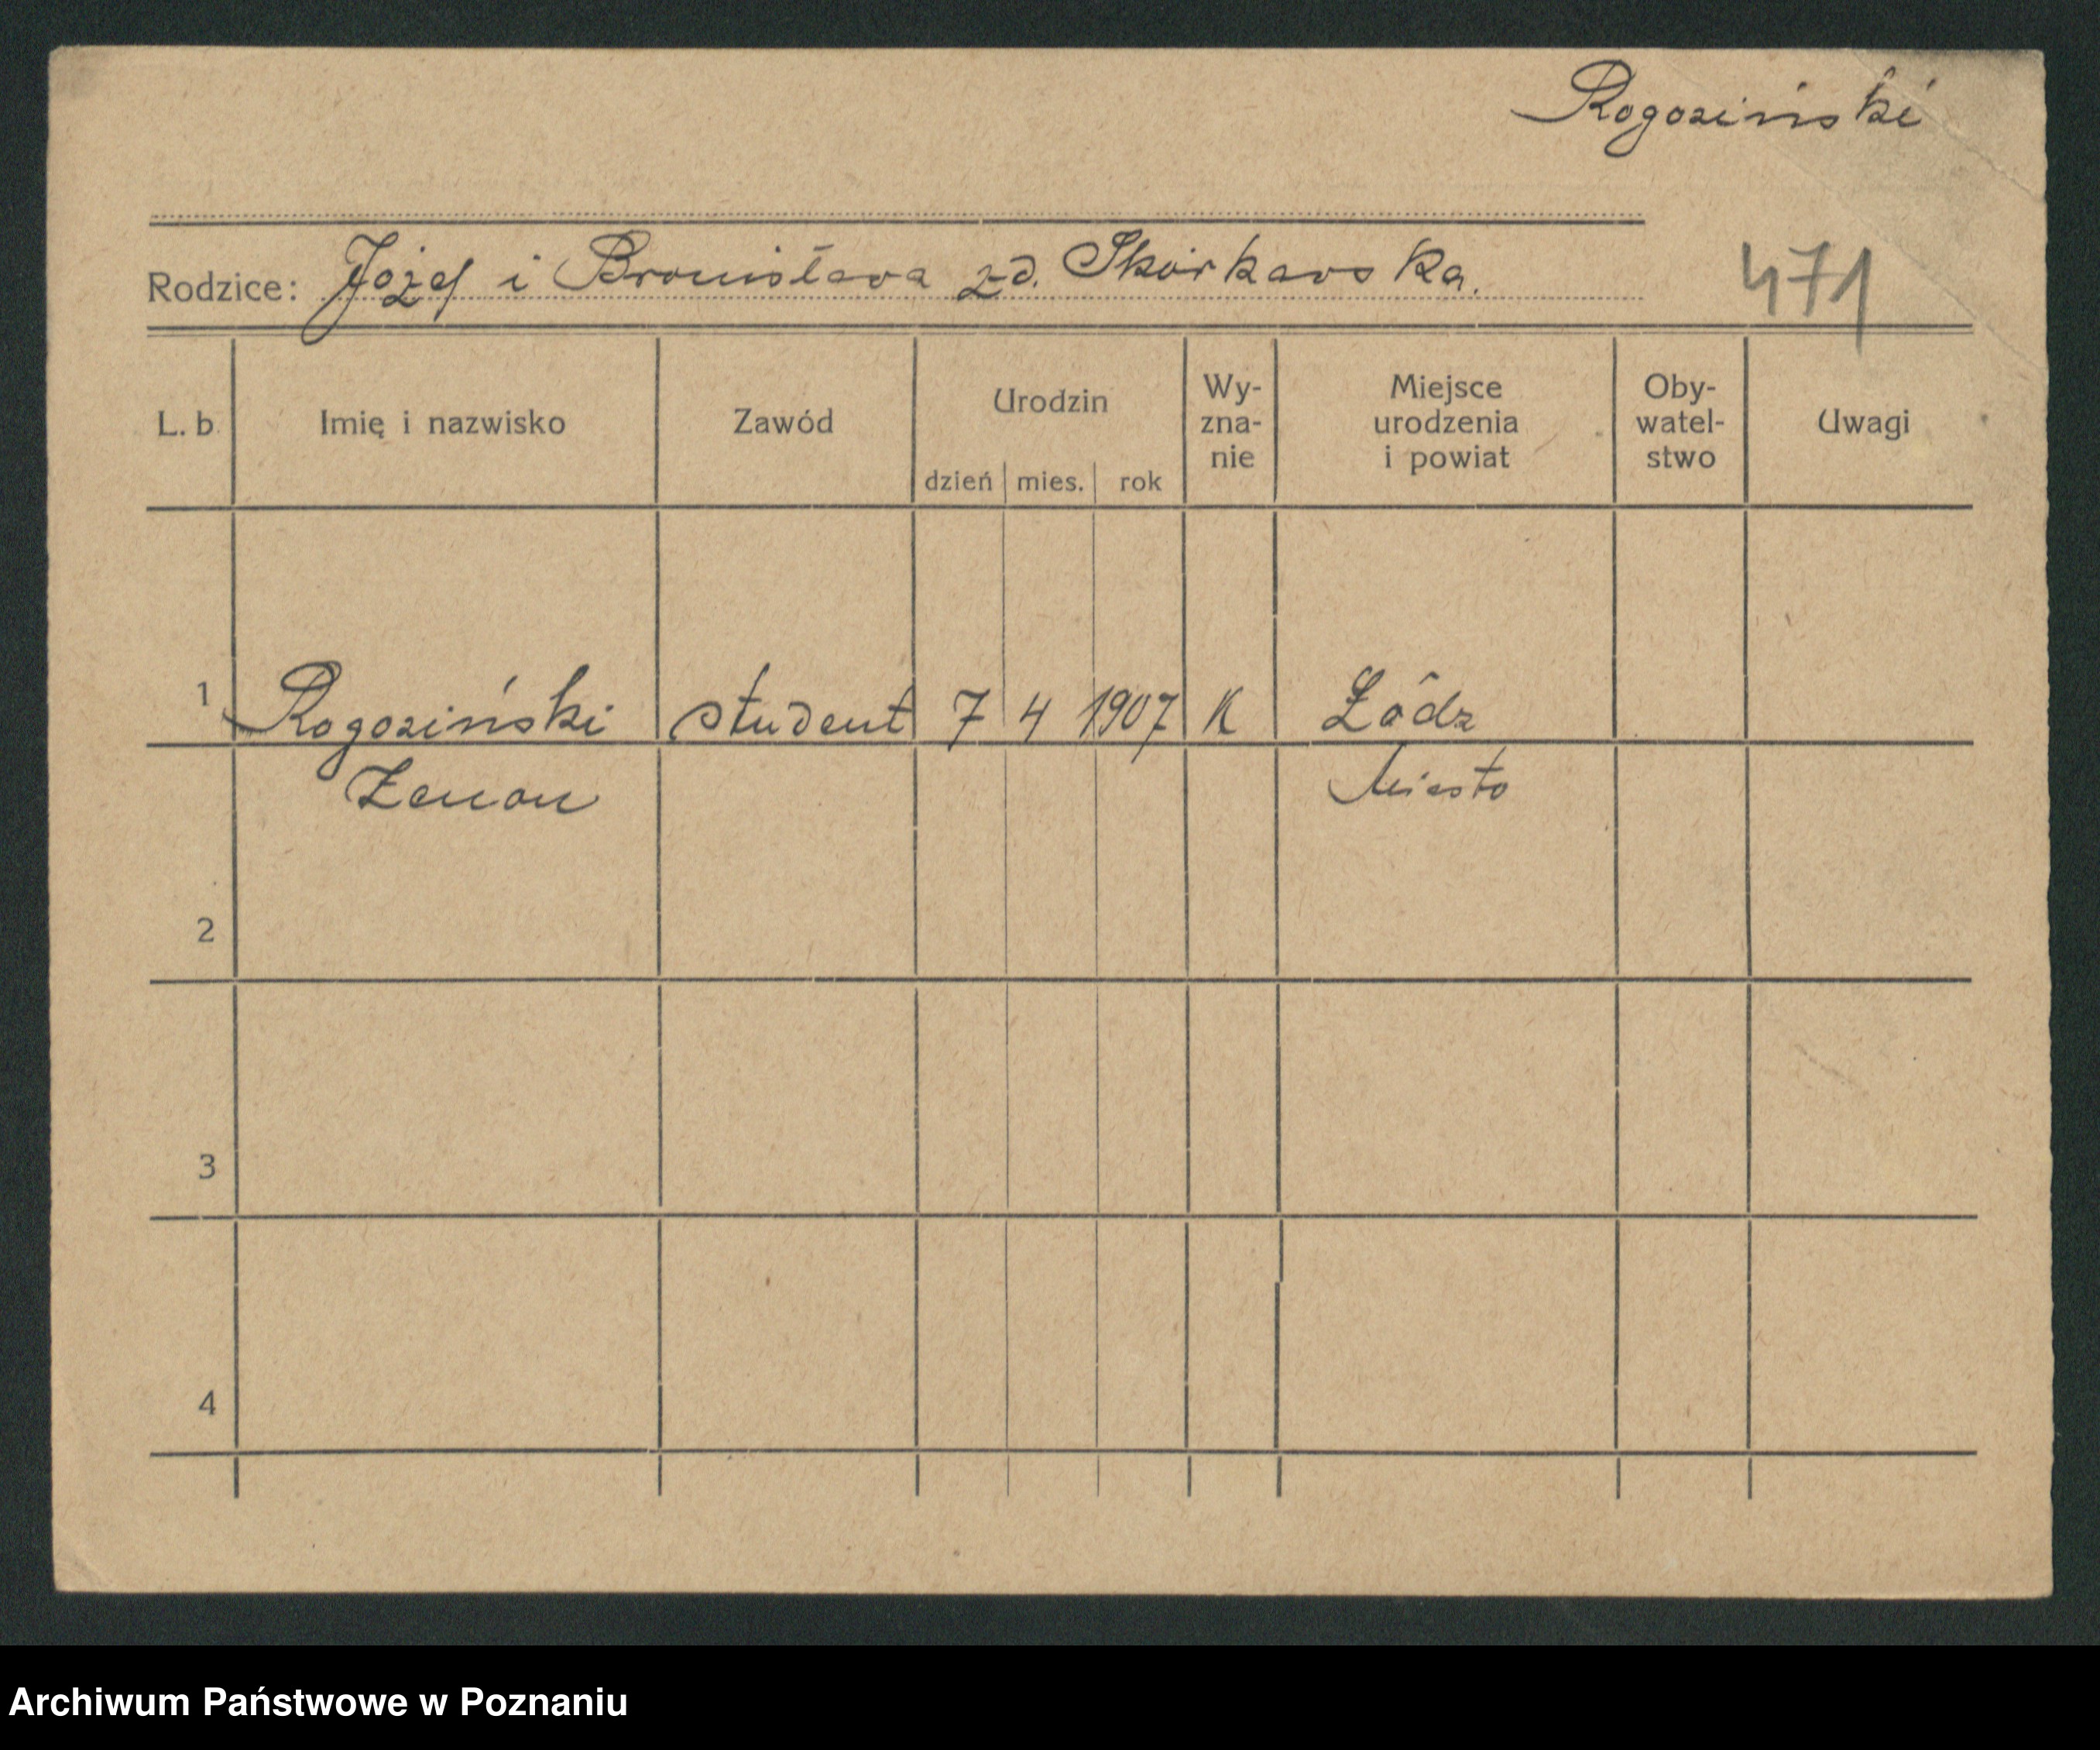 Rogoziński
Rodzice: Józef i Bronisława zd. Skórkowska.
471
L. b. Imię i nazwisko Zawód Urodzin dzień mies. rok Wy-zna-nie Miejsce urodzenia i powiat Oby-watel-stwo Uwagi
1 Rogoziński student 7 4 1907 K Łódz
Zenon Miasto
2
3
4
Archiwum Państwowe w Poznaniu